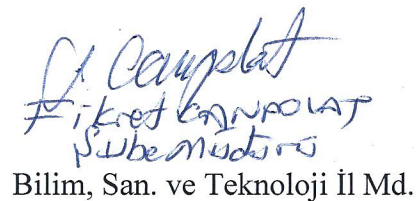 Fikret CANPOLAT
Şube Müdürü
Bilim, San. ve Teknoloji İl Md.